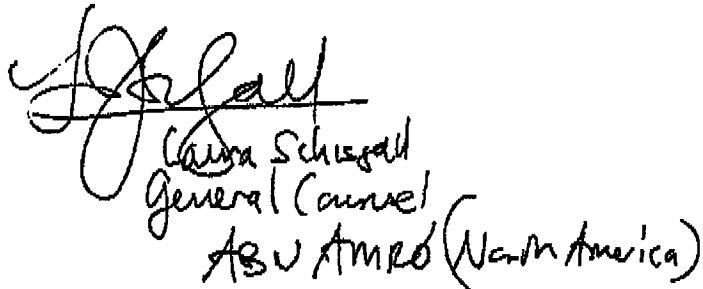 Laura Schisgall
General Counsel
ABN AMRO (North America)